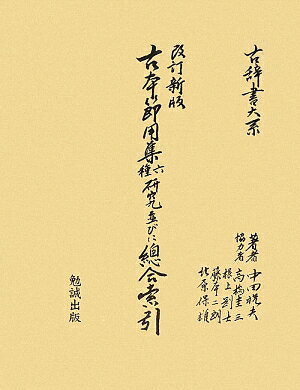 古辞書大系
改訂新版
古本節用集六種研究並びに總合索引
著者 中田祝夫
協力者 高橋圭三
根上剛士
藤本二郎
北原保雄
勉誠出版